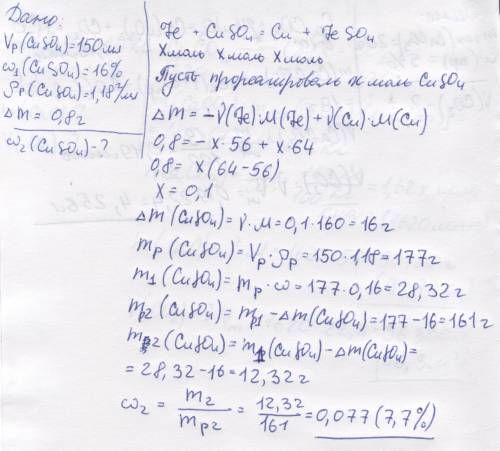 Дано:
Vр(CuSO₄)=150мл
ω₁(CuSO₄)=16%
ρр(CuSO₄)=1,18г/мл
Δm = 0,8г
ω₂(CuSO₄)-?
Fe + CuSO₄ = Cu + FeSO₄
Xмоль Xмоль Xмоль
Пусть прореагировало x моль CuSO₄
Δm = -ν(Fe)·M(Fe)+ν(Cu)·M(Cu)
0,8= -x·56 + x·64
0,8= x(64-56)
x = 0,1
Δm(CuSO₄)=ν·M=0,1·160=16г
mр(CuSO₄)=Vр·ρр=150·1,18=177г
m₁(CuSO₄)= mр·ω=177·0,16=28,32г
mр₂(CuSO₄)= mр₁-Δm(CuSO₄)=177-16=161г
m₂(CuSO₄)=m₁(CuSO₄)-Δm(CuSO₄)=
= 28,32-16=12,32г
ω₂ = m₂/mр₂ = 12,32/161 =0,077(7,7%)